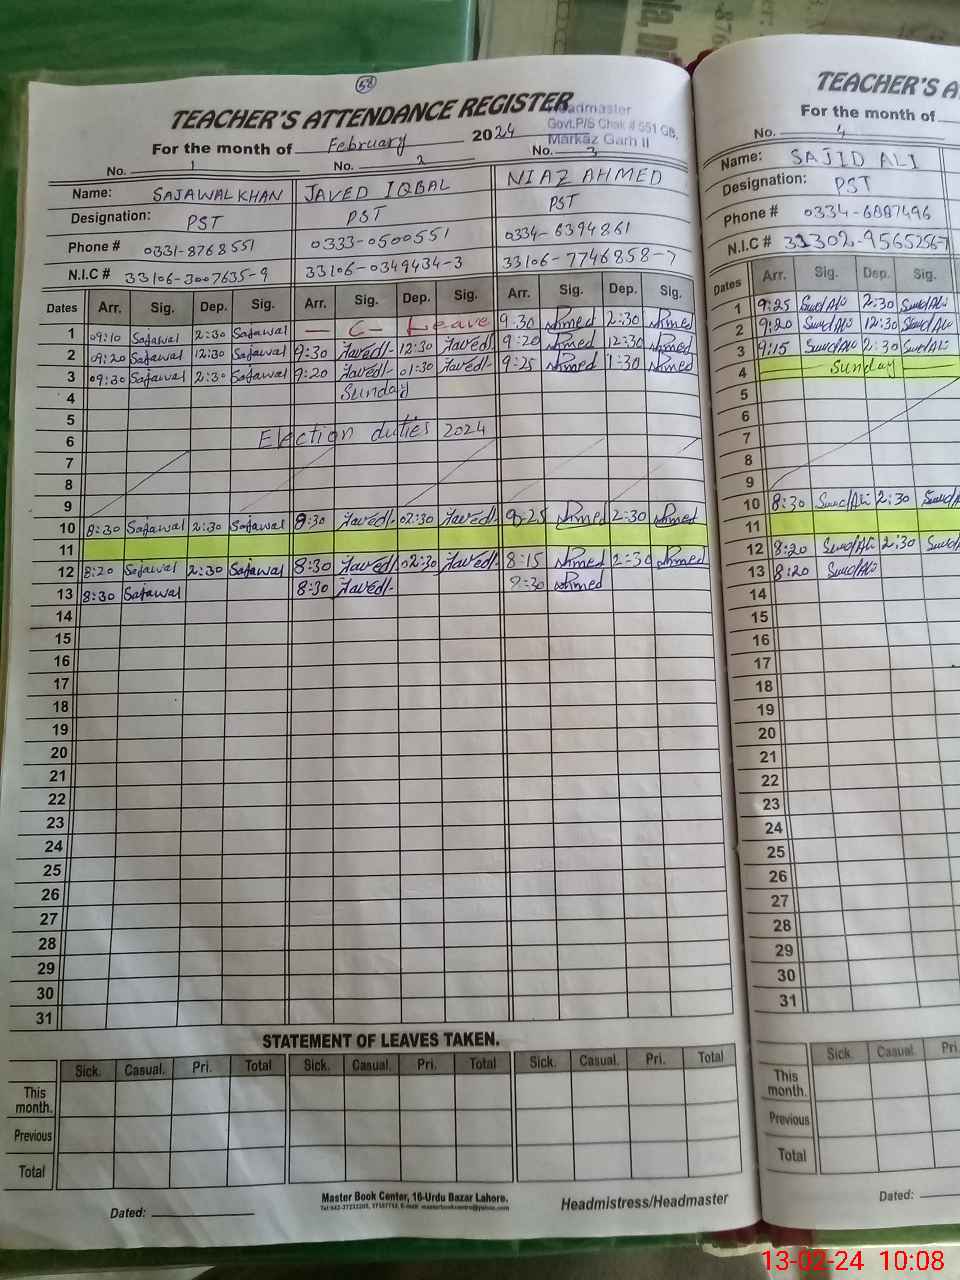 58
TEACHER'S ATTENDANCE REGISTER
Headmaster
Govt.P/S Chak # 551 GB,
Markaz Garh II
For the month of February 2024
No. 1 No. 2 No. 3
Name: SAJAWAL KHAN JAVED IQBAL NIAZ AHMED
Designation: PST PST PST
Phone # 0331-8768551 0333-0500551 0334-6394861
N.I.C # 33106-3007635-9 33106-0349434-3 33106-7746858-7
Dates Arr. Sig. Dep. Sig. Arr. Sig. Dep. Sig. Arr. Sig. Dep. Sig.
1 09:10 Sajawal 2:30 Sajawal — C- Leave 9:30 Ahmed 2:30 Ahmed
2 09:20 Sajawal 12:30 Sajawal 9:30 Javed/- 12:30 Javed/- 9:20 Ahmed 12:30 Ahmed
3 09:30 Sajawal 2:30 Sajawal 9:20 Javed/- 01:30 Javed/- 9:25 Ahmed 1:30 Ahmed
4 Sunday
5
6 Election duties 2024
7
8
9
10 8:30 Sajawal 2:30 Sajawal 8:30 Javed/- 02:30 Javed/- 8:25 Ahmed 2:30 Ahmed
11
12 8:20 Sajawal 2:30 Sajawal 8:30 Javed/- 02:30 Javed/- 8:15 Ahmed 2:30 Ahmed
13 8:30 Sajawal 8:30 Javed/- 8:30 Ahmed
14
15
16
17
18
19
20
21
22
23
24
25
26
27
28
29
30
31
STATEMENT OF LEAVES TAKEN.
Sick. Casual. Pri. Total Sick. Casual. Pri. Total Sick. Casual. Pri. Total
This month.
Previous
Total
Master Book Center, 16-Urdu Bazar Lahore.
Dated: Headmistress/Headmaster
TEACHER'S A
For the month of
No. 4
Name: SAJID ALI
Designation: PST
Phone # 0334-6887496
N.I.C # 33302-9565256-7
Dates Arr. Sig. Dep. Sig.
1 9:25 2:30
2 9:20 12:30
3 9:15 2:30
4 Sunday
5
6
7
8
9
10 8:30 2:30
11
12 8:20 2:30
13 8:20
14
15
16
17
18
19
20
21
22
23
24
25
26
27
28
29
30
31
Sick. Casual. Pri.
This month.
Previous
Total
Dated:
13-02-24 10:08